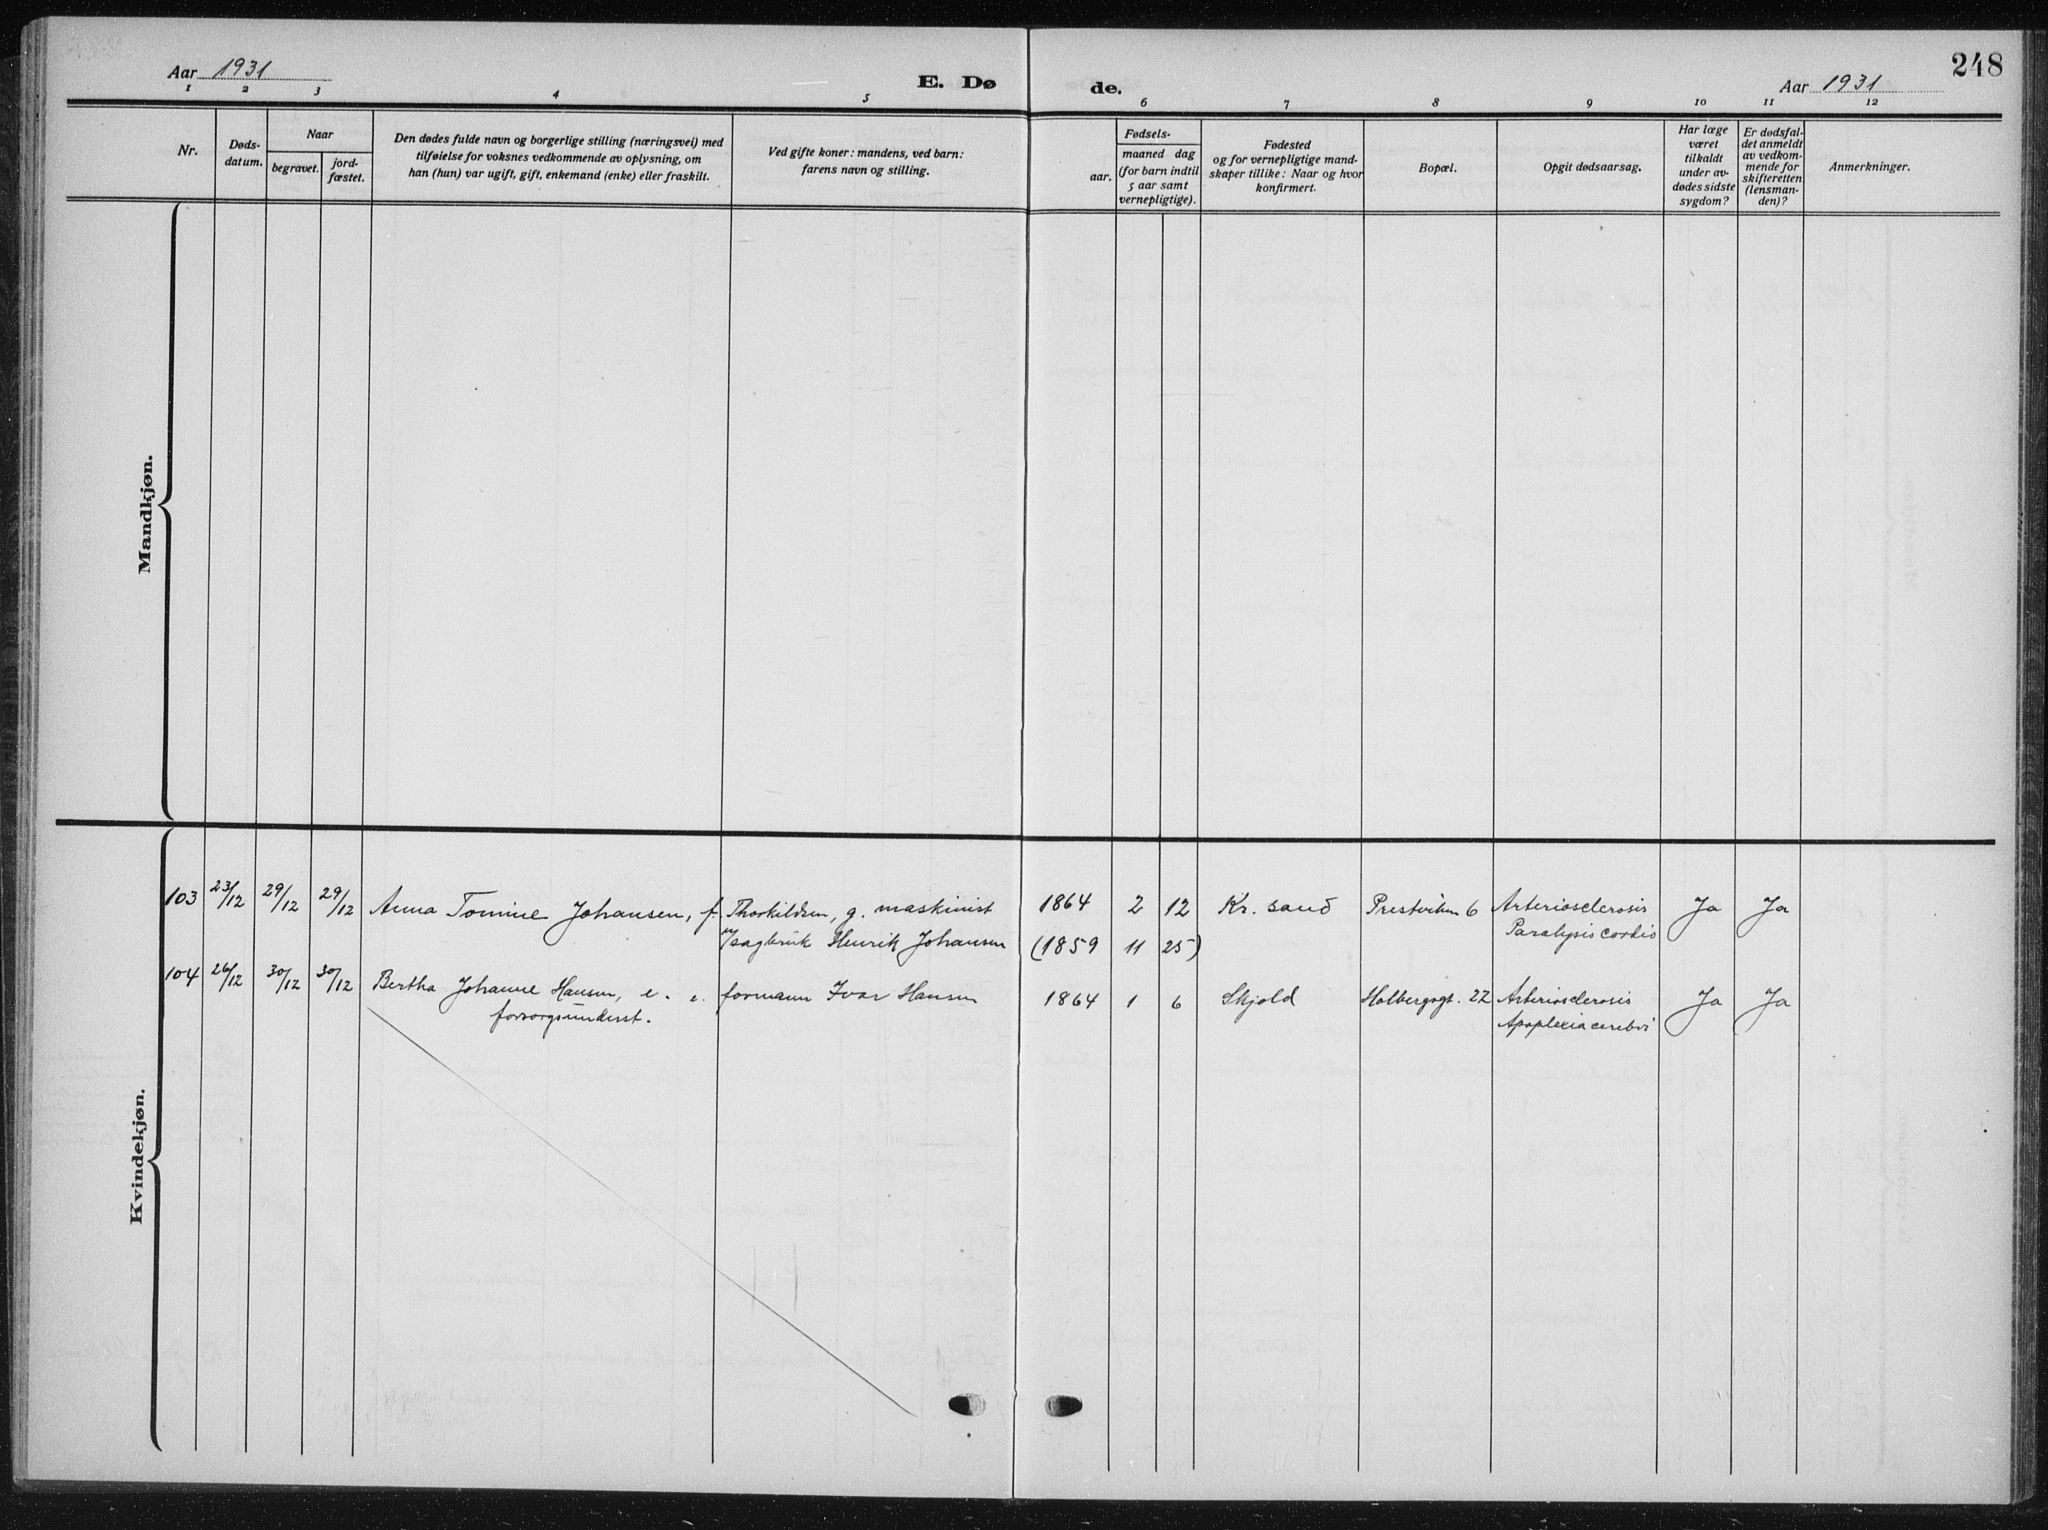 248
Aar 1931
E. Dø
de.
Aar 1931
1 2 3 4 5 6 7 8 9 10 11 12
Nr.
Døds-
datum.
Naar
begravet.
jord-
fæstet.
Den dødes fulde navn og borgerlige stilling (næringsvei) med
tilføielse for voksnes vedkommende av oplysning, om
han (hun) var ugift, gift, enkemand (enke) eller fraskilt.
Ved gifte koner: mandens, ved barn:
farens navn og stilling.
aar.
Fødsels-
maaned dag
(for barn indtil
5 aar samt
vernepligtige).
Fødested
og for vernepligtige mand-
skaper tillike: Naar og hvor
konfirmert.
Bopæl.
Opgit dødsaarsag.
Har læge
været
tilkaldt
under av-
dødes sidste
sygdom?
Er dødsfal-
det anmeldt
av vedkom-
mende for
skifteretten
(lensman-
den)?
Anmerkninger.
Mandkjøn.
Kvindekjøn.
103 23/12 29/12 29/12 Anna Tomine Johansen, f. Thorkildsen, g. maskinist 1864 2 12 Kr. sand Prestviken 6 Arteriosclerosis Ja Ja
Henrik Johansen (1859 11 25) Paralysis cordis
104 26/12 30/12 30/12 Bertha Johanne Hansen, e. e. formann Ivar Hansen 1864 1 6 Skjold Holbergsgt. 22 Arteriosclerosis Ja Ja
forsorgsunderst. Apoplexia cerebri